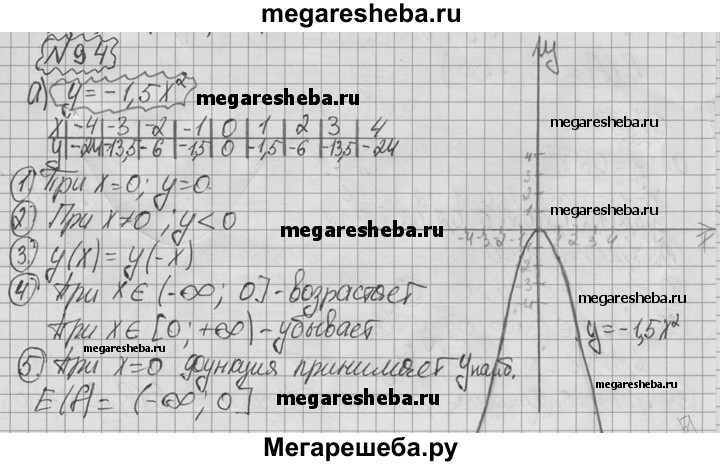 megaresheba.ru
№94
а) y = -1,5x²
megaresheba.ru
x | -4 | -3 | -2 | -1 | 0 | 1 | 2 | 3 | 4
y | -24 | -13,5 | -6 | -1,5 | 0 | -1,5 | -6 | -13,5 | -24
1) При x=0; y=0.
2) При x≠0; y<0
3) y(x) = y(-x)
4) При x∈(-∞; 0] - возрастает
При x∈[0; +∞) - убывает
5) При x=0 функция принимает y наиб.
E(f) = (-∞; 0]
megaresheba.ru
megaresheba.ru
megaresheba.ru
y
megaresheba.ru
4
3
2
1
megaresheba.ru
-4 -3 -2 -1 1 2 3 4
-2
-3
-4
y = -1,5x²
megaresheba.ru
megaresheba.ru
Мегарешеба.ру